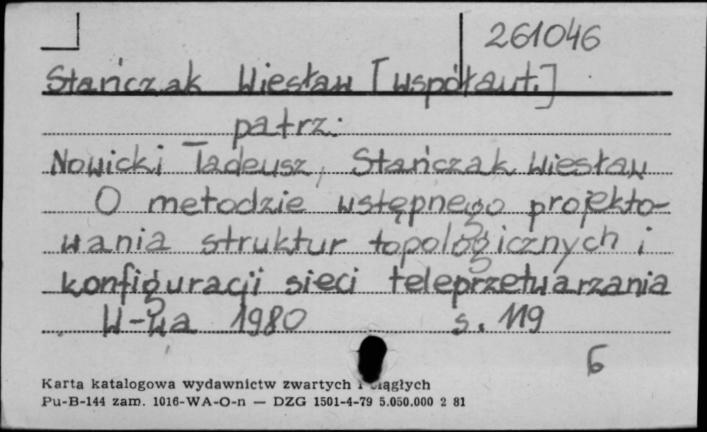 261046
Stańczak Wiesław [współaut.]
patrz:
Nowicki Tadeusz, Stańczak Wiesław
O metodzie wstępnego projekto-
wania struktur topologicznych i
konfiguracji sieci teleprzetwarzania
W-wa 1980 s. 119
6
Karta katalogowa wydawnictw zwartych i ciągłych
Pu-B-144 zam. 1016-WA-O-n — DZG 1501-4-79 5.050.000 2 81